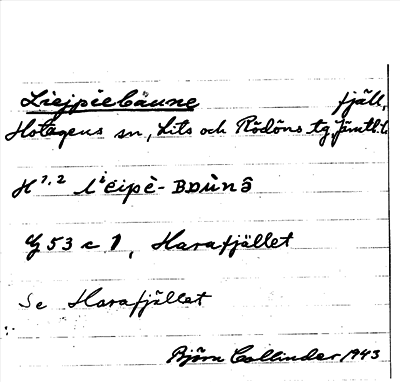 Liejpiebäune fjäll,
Hotagens sn, Lits och Rödöns tg, Jämtl. l.
H 1,2 lⁱeipè-BDùnâ
53 c 1, Harafjället
Se Harafjället
Björn Collinder 1943